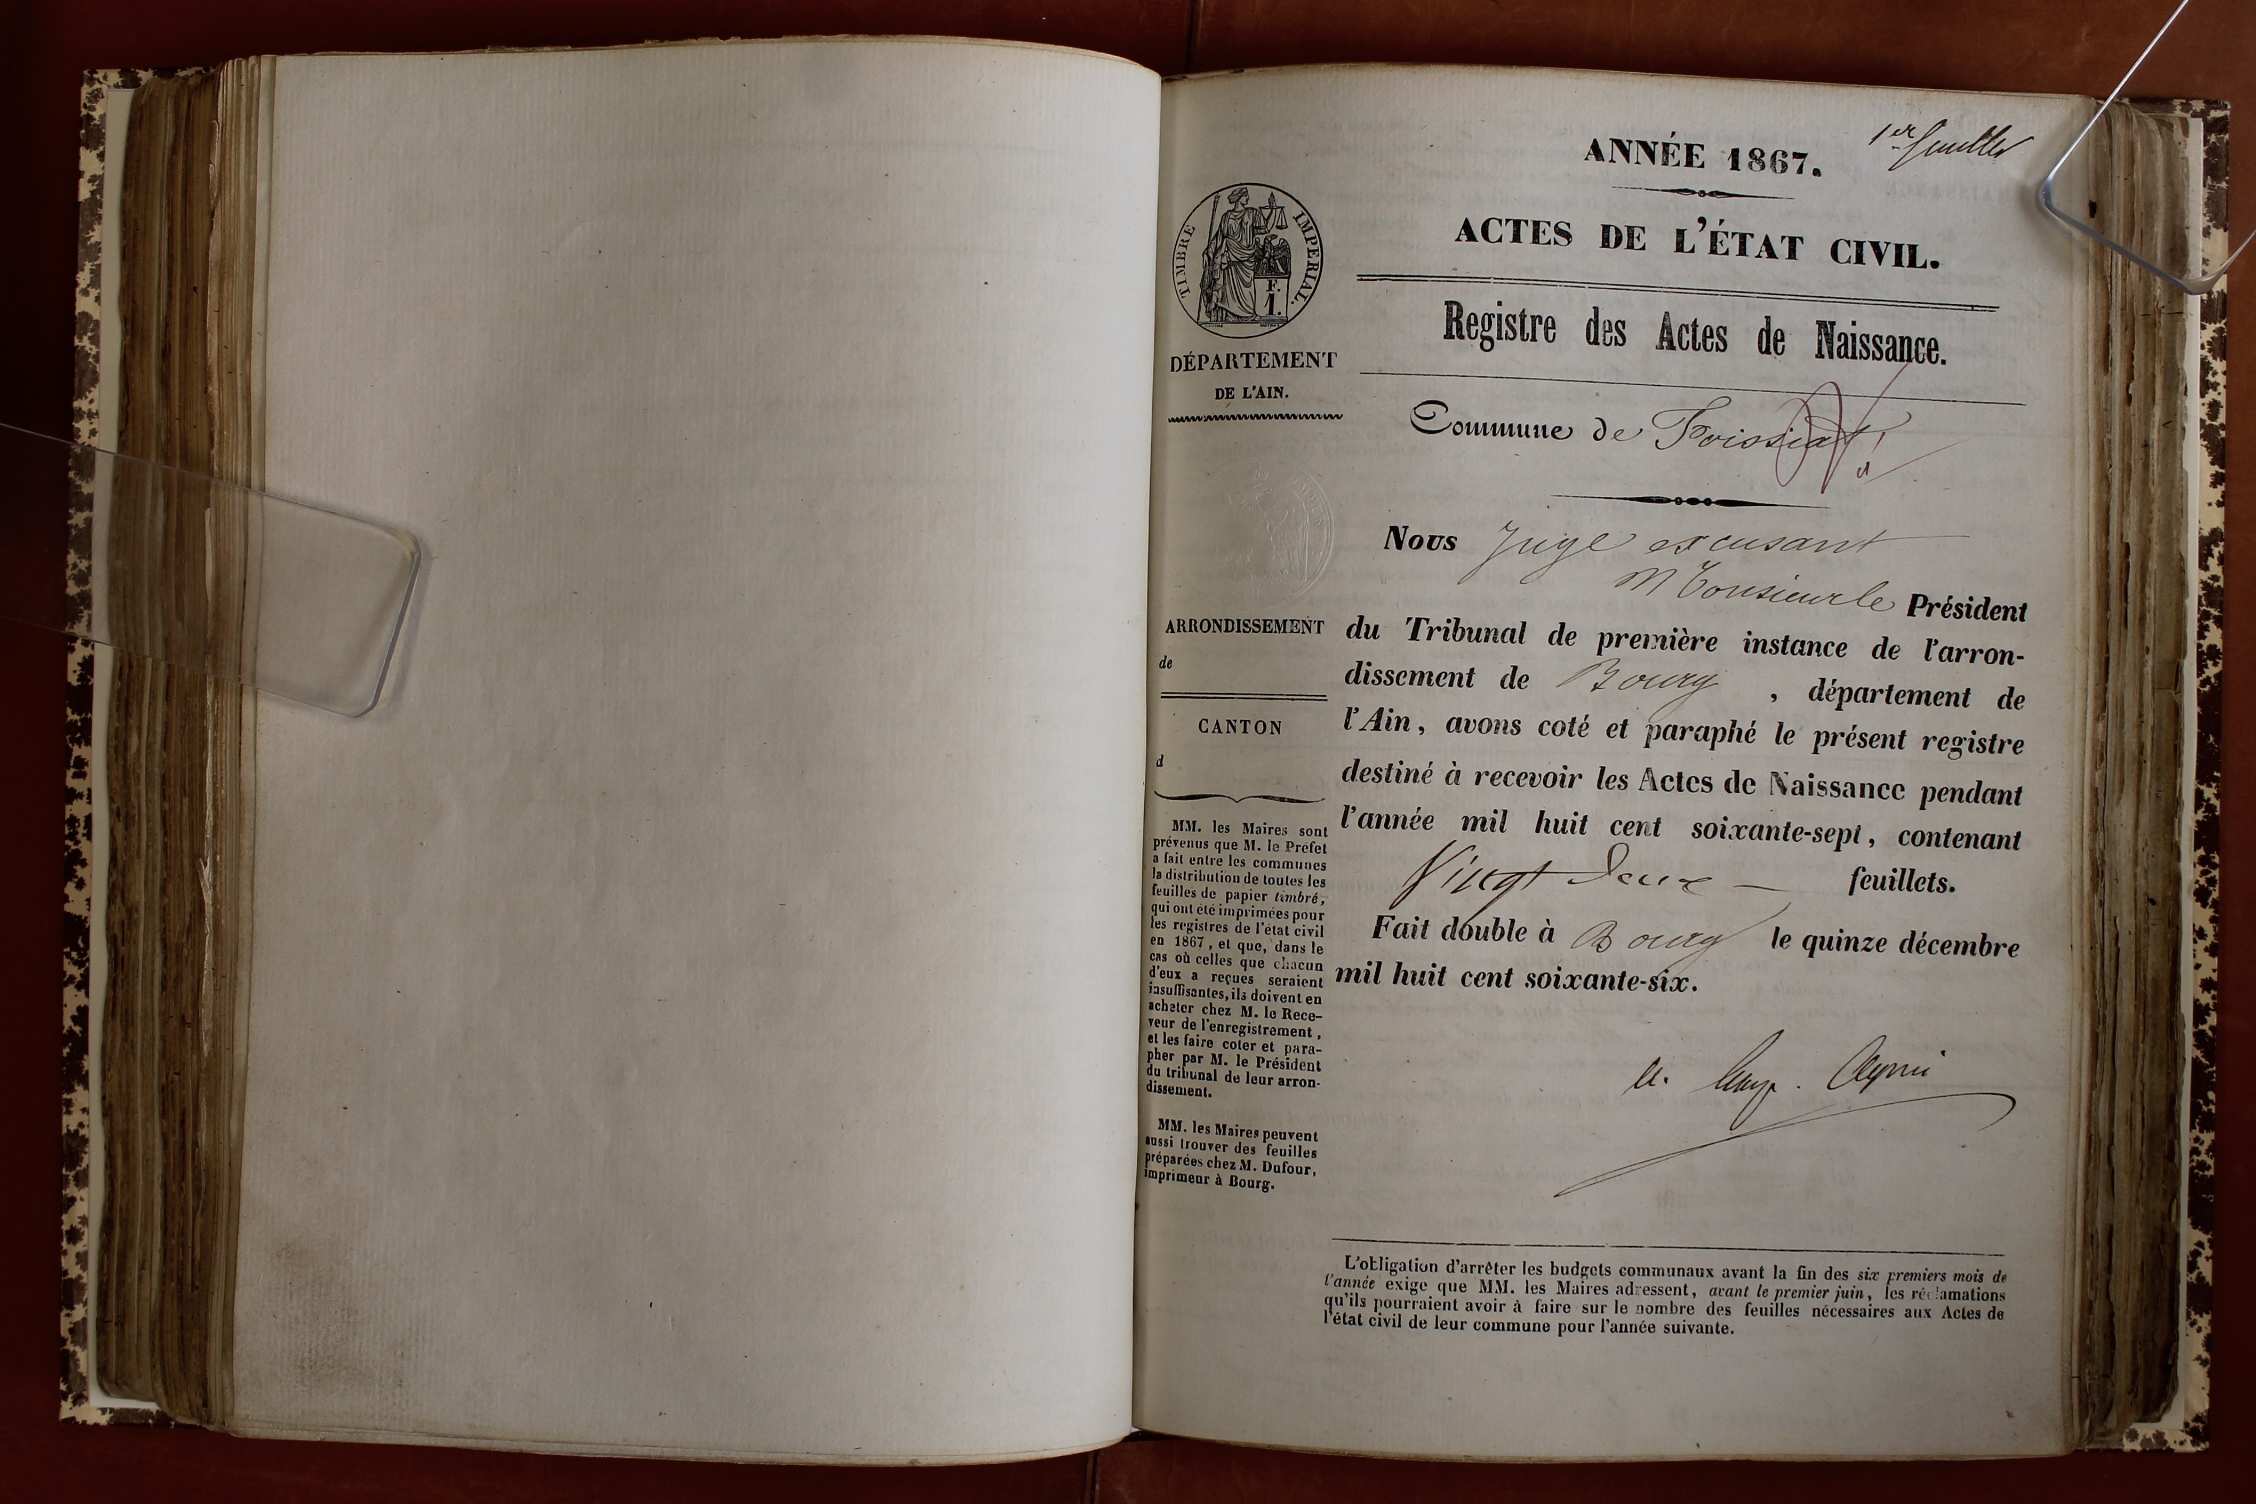 1er feuillet
ANNÉE 1867.
ACTES DE L'ÉTAT CIVIL.
Registre des Actes de Naissance.
Commune de Foissiat
TIMBRE IMPÉRIAL.
F.
1.
DÉPARTEMENT
DE L'AIN.
ARRONDISSEMENT
de
CANTON
d
MM. les Maires sont
prévenus que M. le Préfet
a fait entre les communes
la distribution de toutes les
feuilles de papier timbré,
qui ont été imprimées pour
les registres de l'état civil
en 1867, et que, dans le
cas où celles que chacun
d'eux a reçues seraient
insuffisantes, ils doivent en
acheter chez M. le Rece-
veur de l'enregistrement,
et les faire coter et para-
pher par M. le Président
du tribunal de leur arron-
dissement.
MM. les Maires peuvent
aussi trouver des feuilles
préparées chez M. Dufour,
imprimeur à Bourg.
Nous Juge excusant
Monsieur le Président
du Tribunal de première instance de l'arron-
dissement de Bourg, département de
l'Ain, avons coté et paraphé le présent registre
destiné à recevoir les Actes de Naissance pendant
l'année mil huit cent soixante-sept, contenant
Vingt deux feuillets.
Fait double à Bourg le quinze décembre
mil huit cent soixante-six.
L'obligation d'arrêter les budgets communaux avant la fin des six premiers mois de
l'année exige que MM. les Maires adressent, avant le premier juin, les réclamations
qu'ils pourraient avoir à faire sur le nombre des feuilles nécessaires aux Actes de
l'état civil de leur commune pour l'année suivante.